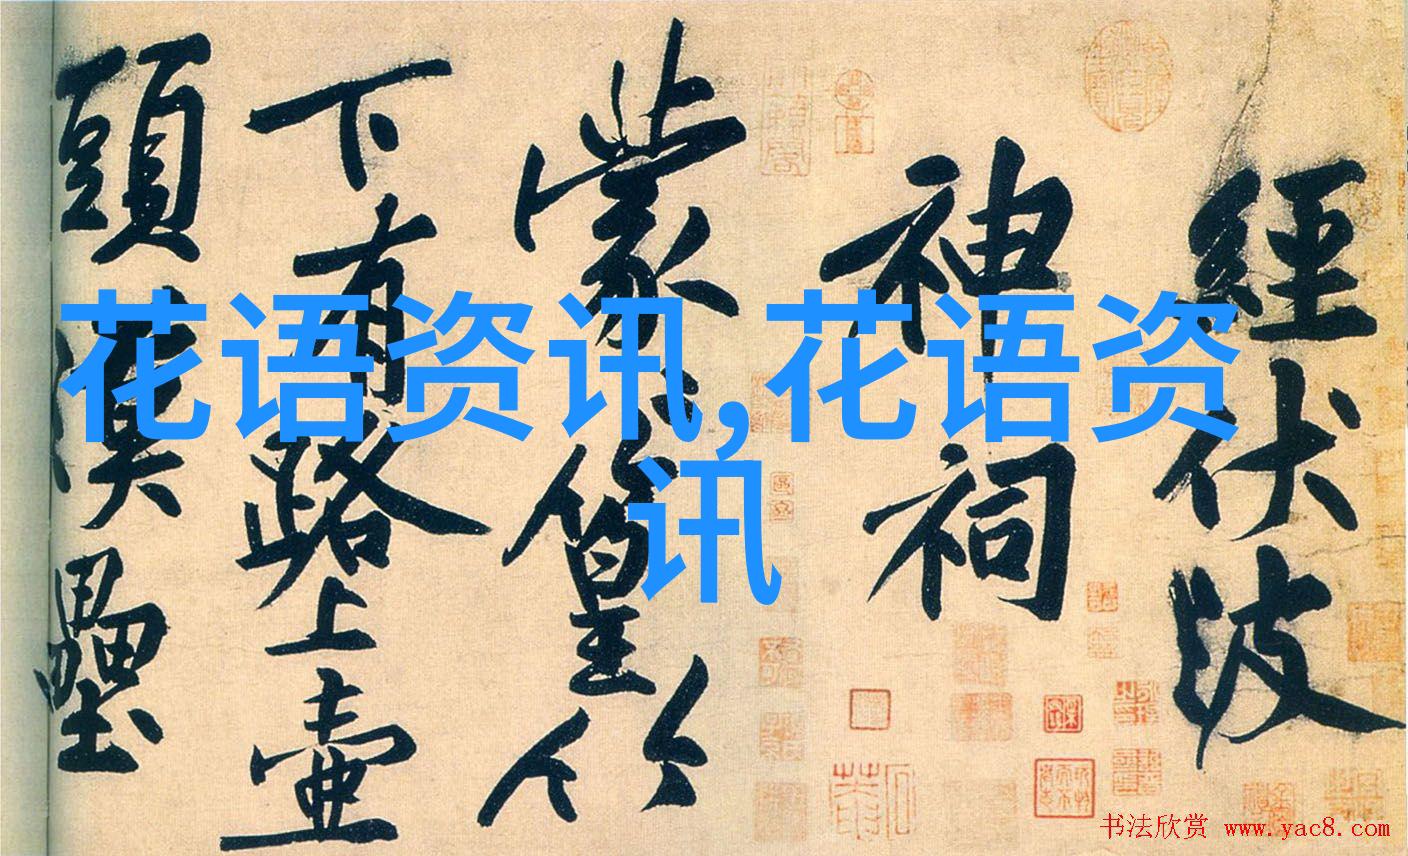 花语资讯,花语资
讯
經伏波
神祠
蒙蒙篁竹
下有路上壺
頭漢壘
书法欣赏 www.yac8.com